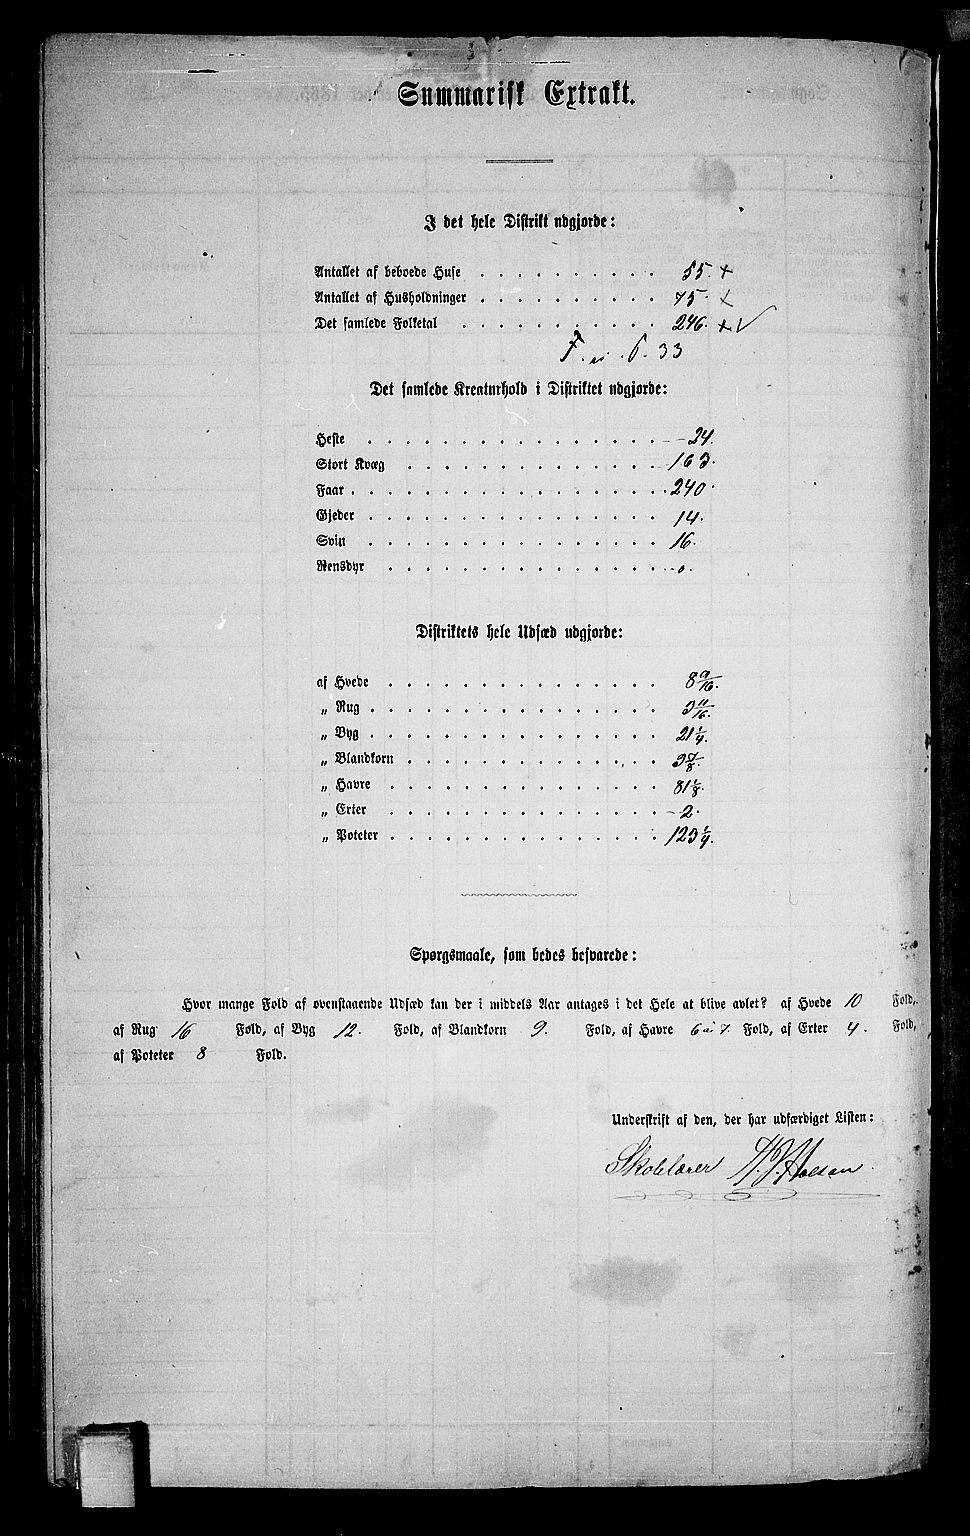 Summarisk Extrakt.
I det hele Distrikt udgjorde:
Antallet af beboede Huse . . . . . . . . . . 55. +
Antallet af Husholdninger . . . . . . . . . . 75. +
Det samlede Folketal . . . . . . . . . . . 246. + ✓
33
Det samlede Kreaturhold i Distriktet udgjorde:
Heste . . . . . . . . . . . . . . . . 24.
Stort Kvæg . . . . . . . . . . . . . . 163.
Faar . . . . . . . . . . . . . . . . . 240.
Gjeder . . . . . . . . . . . . . . . . 14.
Svin . . . . . . . . . . . . . . . . . 16.
Rensdyr . . . . . . . . . . . . . . . 0.
Distriktets hele Udsæd udgjorde:
af Hvede . . . . . . . . . . . . . . . 8 9/16.
„ Rug . . . . . . . . . . . . . . . . 3 11/16.
„ Byg . . . . . . . . . . . . . . . . 21 1/4.
„ Blandkorn . . . . . . . . . . . . . 3 7/8.
„ Havre . . . . . . . . . . . . . . . 81 1/8.
„ Erter . . . . . . . . . . . . . . . 2.
„ Poteter . . . . . . . . . . . . . . 123 1/4.
Spørgsmaale, som bedes besvarede:
Hvor mange Fold af ovenstaaende Udsæd kan der i middels Aar antages i det Hele at blive avlet? af Hvede 10 Fold,
af Rug 16 Fold, af Byg 12. Fold, af Blandkorn 9. Fold, af Havre 6 a 7. Fold, af Erter 4. Fold,
af Poteter 8 Fold.
Underskrift af den, der har udfærdiget Listen:
Skolelærer